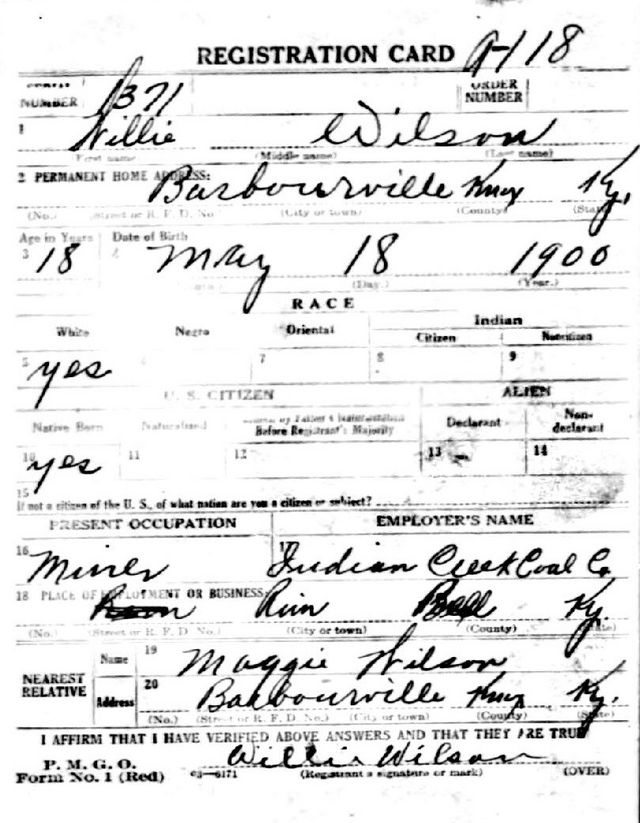 REGISTRATION CARD A-118
SERIAL NUMBER 1371 ORDER NUMBER
1 Willie Wilson
First name (Middle name) (Last name)
2 PERMANENT HOME ADDRESS:
Barbourville Knox Ky.
(No.) (Street or R. F. D. No.) (City or town) (County) (State)
Age in Years Date of Birth
3 18 4 May 18 1900
(Day.) (Year.)
RACE
White Negro Oriental Indian
Citizen Noncitizen
5 yes 7 8 9
U. S. CITIZEN ALIEN
Native Born Naturalized Citizen by Father's Naturalization Before Registrant's Majority Declarant Non-declarant
10 yes 11 12 13 14
15
If not a citizen of the U. S., of what nation are you a citizen or subject?
PRESENT OCCUPATION EMPLOYER'S NAME
16 Miner 17 Indian Creek Coal Co
18 PLACE OF EMPLOYMENT OR BUSINESS:
Rim Bell Ky.
(No.) (Street or R. F. D. No.) (City or town) (County) (State)
NEAREST RELATIVE
Name 19 Maggie Wilson
Address 20 Barbourville Knox Ky.
(No.) (Street or R. F. D. No.) (City or town) (County) (State)
I AFFIRM THAT I HAVE VERIFIED ABOVE ANSWERS AND THAT THEY ARE TRUE
P. M. G. O.
Form No. 1 (Red) 03—6171 Willie Wilson
(Registrant's signature or mark) (OVER)